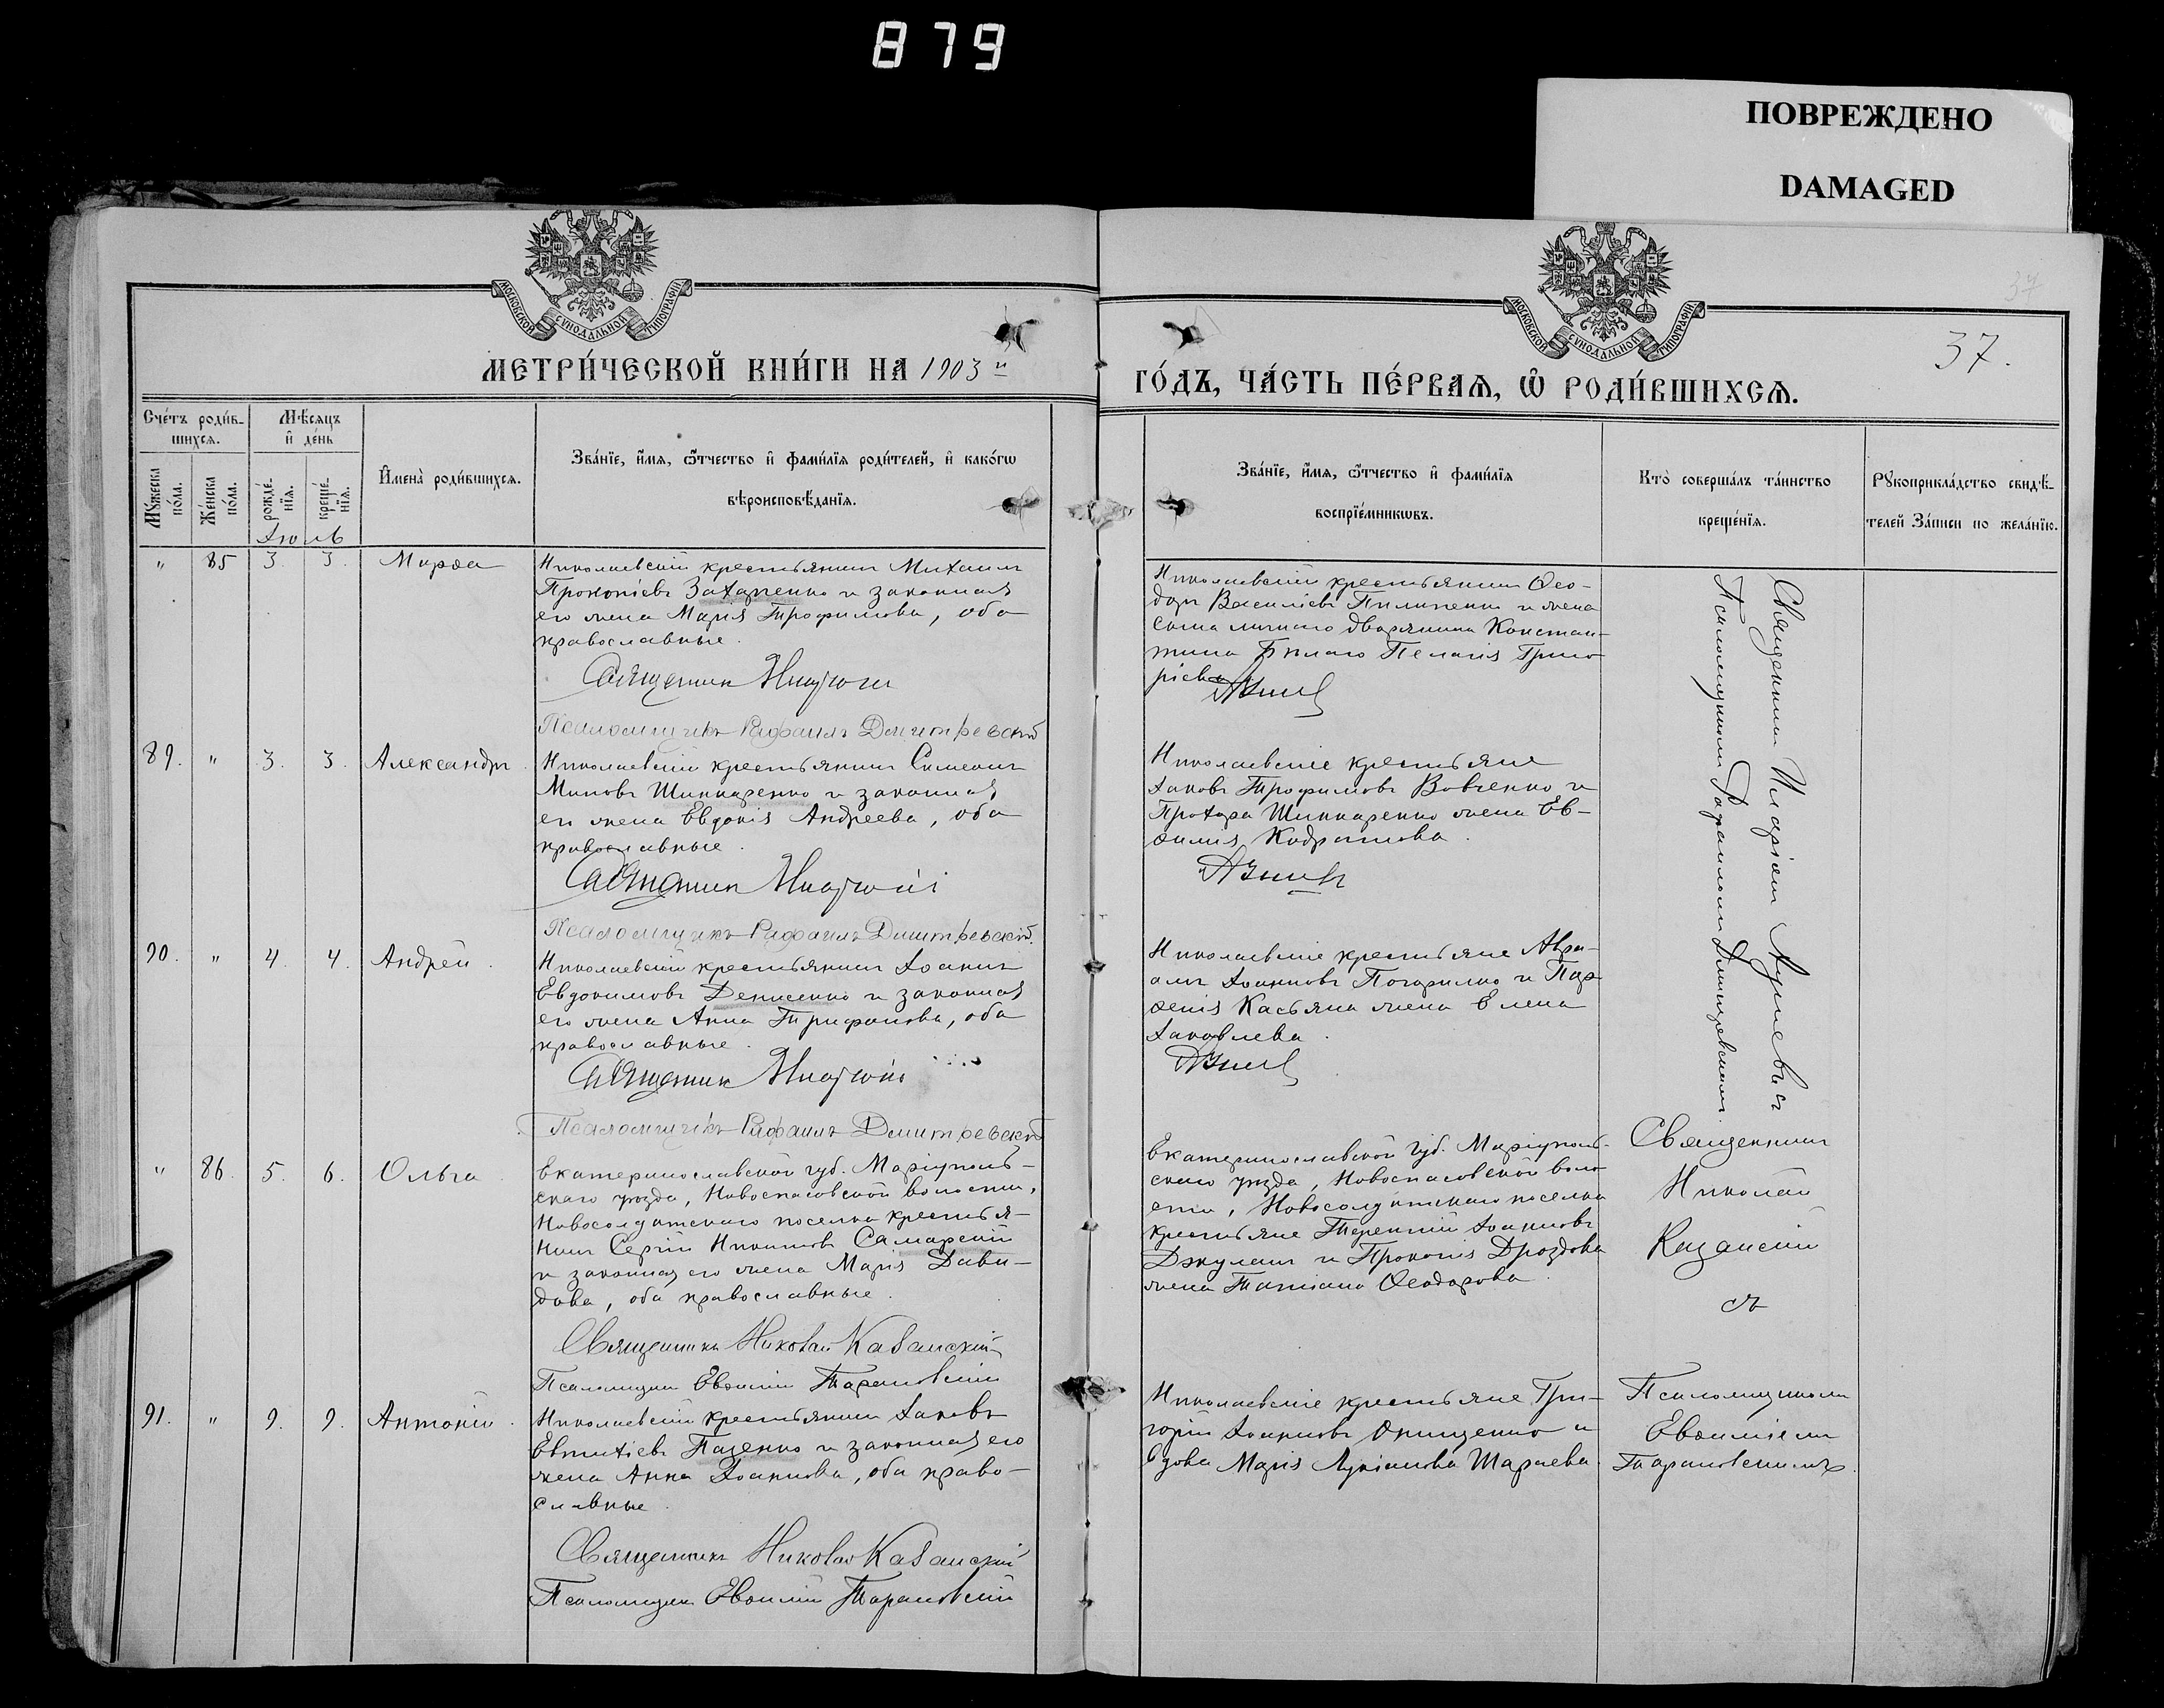 879
ПОВРЕЖДЕНО
DAMAGED
МОСКОВСКОЙ СѴНОДАЛЬНОЙ ТИПОГРАФІИ
МОСКОВСКОЙ СѴНОДАЛЬНОЙ ТИПОГРАФІИ
37
37.
МЕТРИ́ЧЕСКОЙ КНИ́ГИ НА 1903й
ГО́ДЪ, ЧА́СТЬ ПЕ́РВАЯ, Ѽ РОДИ́ВШИХСЯ.
Сче́тъ роди́вшихся.
Мужеска по́ла.
Же́нска по́ла.
Мѣ́сяцъ и де́нь
рожде́нїя.
креще́нїя.
Іюль
Имена̀ роди́вшихся.
Зва́нїе, и́мя, ѻ҆́тчество и фами́лїя роди́телей, и како́гѡ
вѣроисповѣ́данїя.
Зва́нїе, и́мя, ѻ҆́тчество и фами́лїя
воспрїе́мникѡвъ.
Кто̀ соверша́лъ та́инство
креще́нїя.
Рꙋкоприкла́дство свидѣ́-
телей за́писи по жела́нїю.
" 85 3. 3. Марѳа
Николаевскій крестьянинъ Михаилъ
Прокопіевъ Захарченко и законная
его жена Марія Трофимова, оба
православные.
Священник
Псаломщикъ Рафаилъ Димитревскій
Николаевскій крестьянинъ Ѳео-
доръ Василіевъ Пилипенко и жена
сына личнаго дворянина Констан-
тина Бѣлаго Пелагія Григо-
ріева
89. " 3. 3. Александръ
Николаевскій крестьянинъ Симеонъ
Миновъ Шинкаренко и законная
его жена Евдокія Андреева, оба
православные.
Священник
Псаломщикъ Рафаилъ Димитревскій.
Николаевскіе крестьяне
Іаковъ Трофимовъ Вовченко и
Прохора Шинкаренко жена Ев-
ѳимія Кодратова.
90. " 4. 4. Андрей.
Николаевскій крестьянинъ Іоаннъ
Евдокимовъ Денисенко и законная
его жена Анна Трифонова, оба
православные.
Священник
Псаломщикъ Рафаилъ Димитревскій
Николаевскіе крестьяне Авра-
амъ Іоанновъ Погорилко и Пар-
ѳенія Касьяна жена Елена
Іаковлева.
Священникъ Иларіонъ съ
Псаломщикомъ Рафаиломъ Димитревскимъ
" 86. 5. 6. Ольга.
Екатеринославской губ. Маріуполь-
скаго уѣзда, Новоспасовской волости,
Новосолдатскаго поселка крестья-
нинъ Сергій Никитовъ Самарскій
и законная его жена Марія Дави-
дова, оба православные.
Священникъ Николай Казанскій
Псаломщикъ Евѳимій Тарановскій
Екатеринославской губ. Маріуполь-
скаго уѣзда, Новоспасовской воло-
сти, Новосолдатскаго поселка
крестьяне Терентій Іоанновъ
Джуланъ и Прокопія Дроздова
жена Татіана Ѳеодорова.
Священникъ
Николай
Казанскій
съ
91. " 9. 9. Антоній.
Николаевскій крестьянинъ Іаковъ
Евтихіевъ Паценко и законная его
жена Анна Іоаннова, оба право-
славные.
Священникъ Николай Казанскій
Псаломщикъ Евѳимій Тарановскій
Николаевскіе крестьяне Гри-
горій Іоанновъ Онищенко и
вдова Марія Лукіанова Шараева.
Псаломщикомъ
Евѳиміемъ
Тарановскимъ.